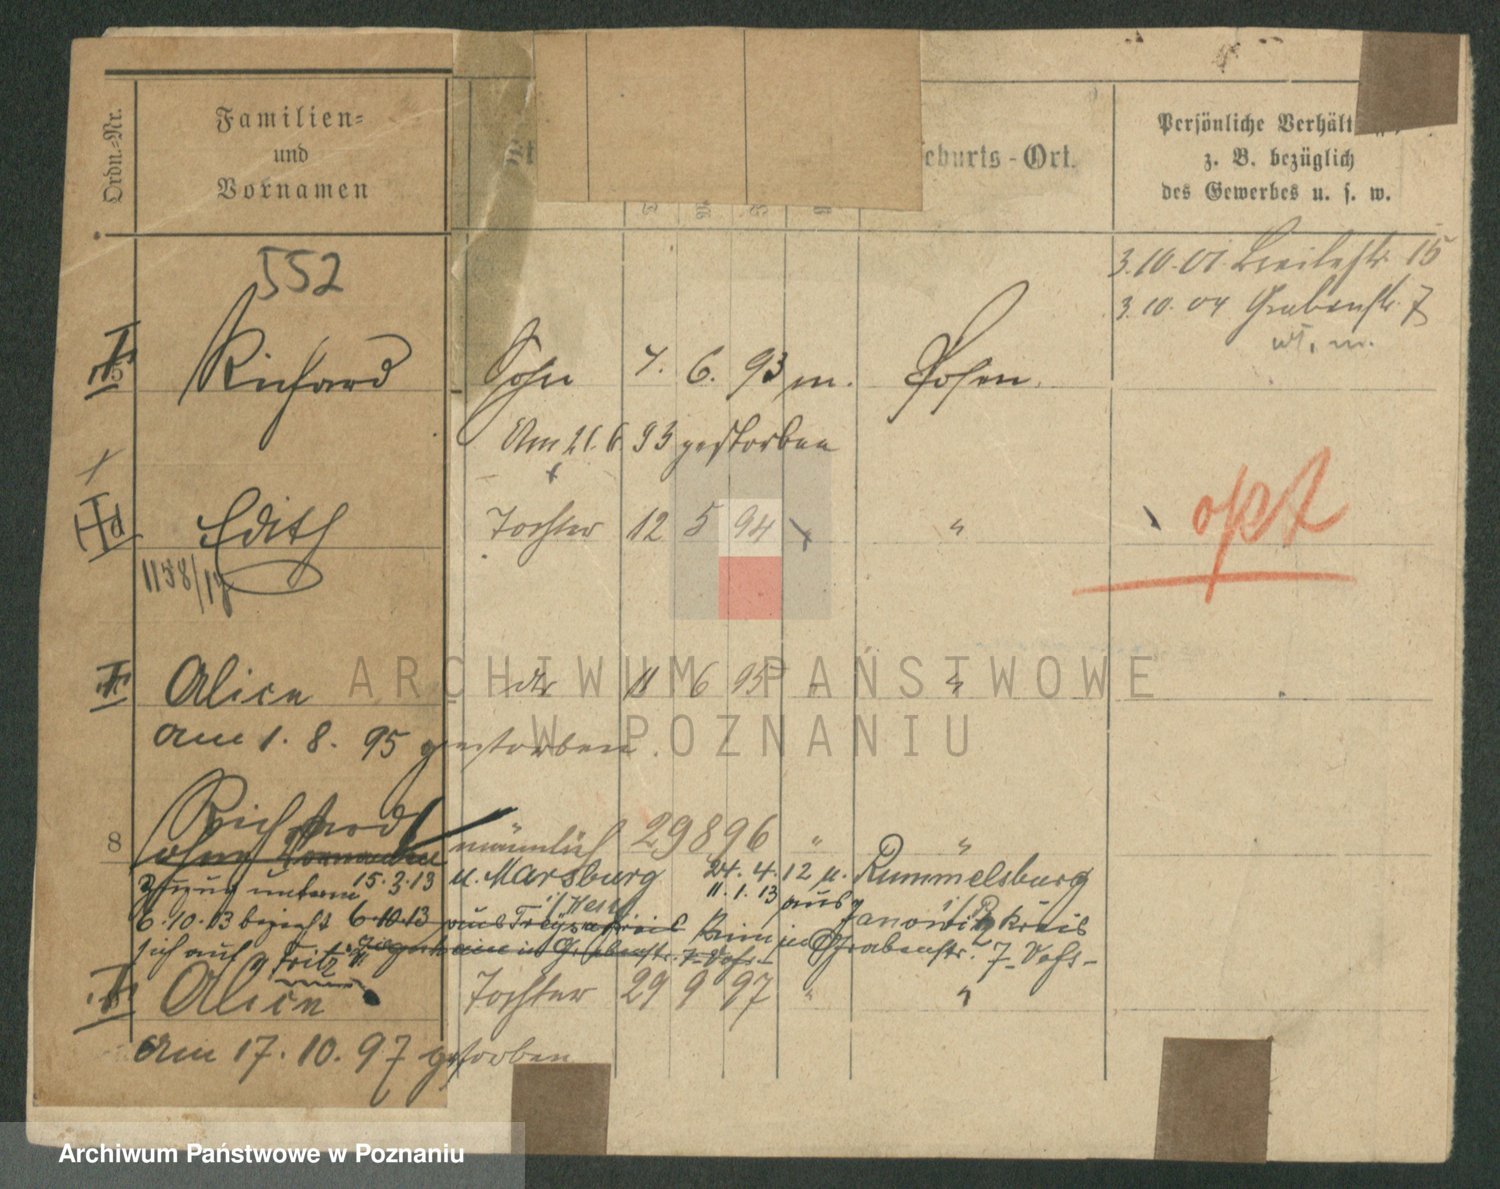 Ordn.-Nr.
Familien-
und
Vornamen
eburts-Ort.
Persönliche Verhält
z. B. bezüglich
des Gewerbes u. s. w.
552
3.10.01. Breitestr. 15
3.10.04 Grabenstr. 7
Richard Sohn 7. 6. 93 m. Posen.
Am 21.6.93 gestorben
Edith Tochter 12 5 94 "
1158/17
opt
Alice dto 11 6 95 " "
am 1. 8. 95 gestorben.
8 Richard
ohne Vornamen männlich 29 8 96 " "
15.3.13 u. Marsburg 24.4.12 u. Rummelsburg
11.1.13 aus Janowitz Kreis
6.10.13 bezieht 6.10.13 aus
sich auf Fritz Grabenstr. 7
Alice Tochter 29 9 97 " "
Am 17.10.97 gestorben
ARCHIWUM PAŃSTWOWE
W POZNANIU
Archiwum Państwowe w Poznaniu